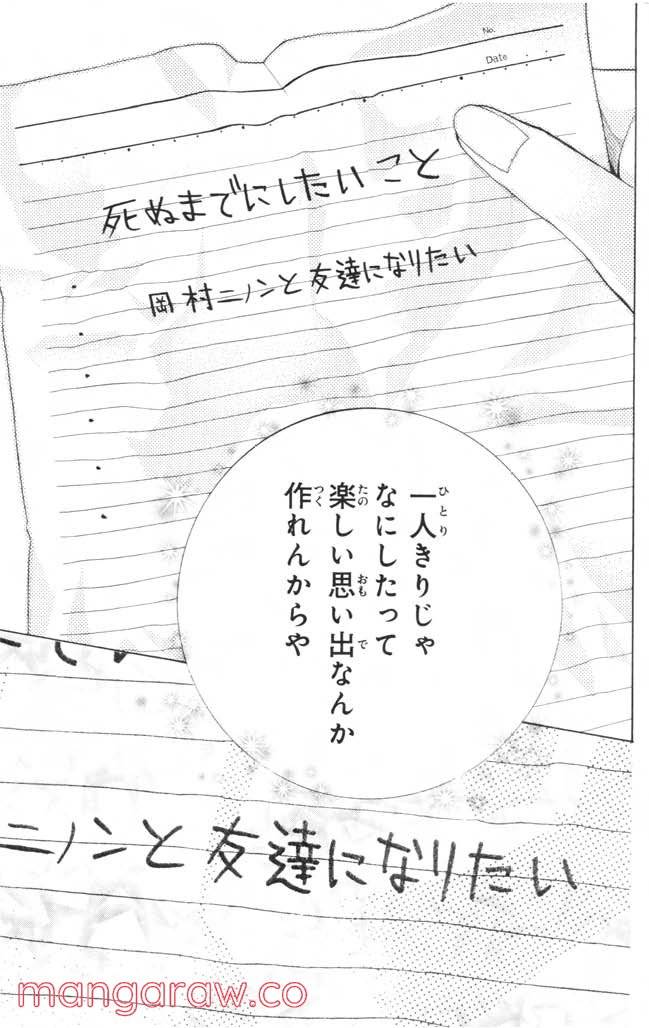 No.
Date
死ぬまでにしたいこと
岡村ニノンと友達になりたい
一人きりじゃ
なにしたって
楽しい思い出なんか
作れんからや
ニノンと友達になりたい
mangaraw.co